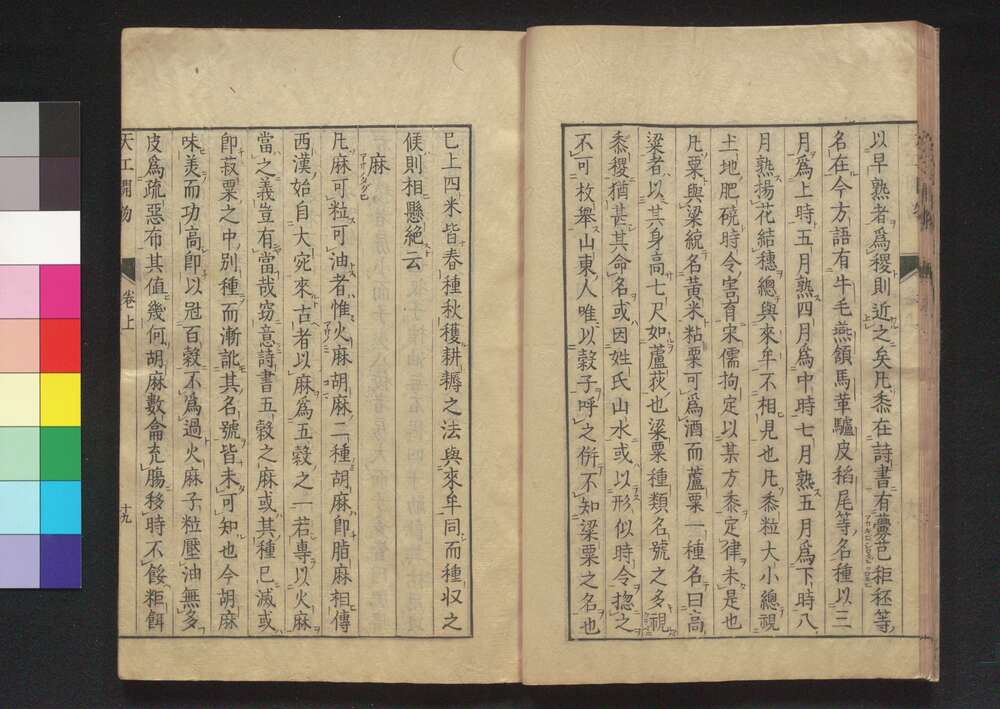 以早熟者爲稷則近之矣凡黍在詩書有虋芑秬秠等
名在今方語有牛毛燕頷馬革驢皮稻尾等名種以三
月爲上時五月熟四月爲中時七月熟五月爲下時八
月熟揚花結穗總與來牟不相見也凡黍粒大小總視
土地肥磽時令害育宋儒拘定以某方黍定律未是也
凡粟與粱統名黃米粘粟可爲酒而蘆粟一種名曰高
粱者以其身高七尺如蘆荻也粱粟種類名號之多視
黍稷猶甚其命名或因姓氏山水或以形似時令揔之
不可枚舉山東人唯以穀子呼之併不知粱粟之名也
已上四米皆春種秋穫耕耨之法與來牟同而種収之
候則相懸絕云
麻
凡麻可粒可油者惟火麻胡麻二種胡麻即脂麻相傳
西漢始自大宛來古者以麻爲五穀之一若專以火麻
當之義豈有當哉窃意詩書五穀之麻或其種已滅或
即菽粟之中別種而漸訛其名號皆未可知也今胡麻
味美而功高即以冠百穀不爲過火麻子粒壓油無多
皮爲疏惡布其值幾何胡麻數龠充膓移時不餒粔餌
天工開物
卷上
十九